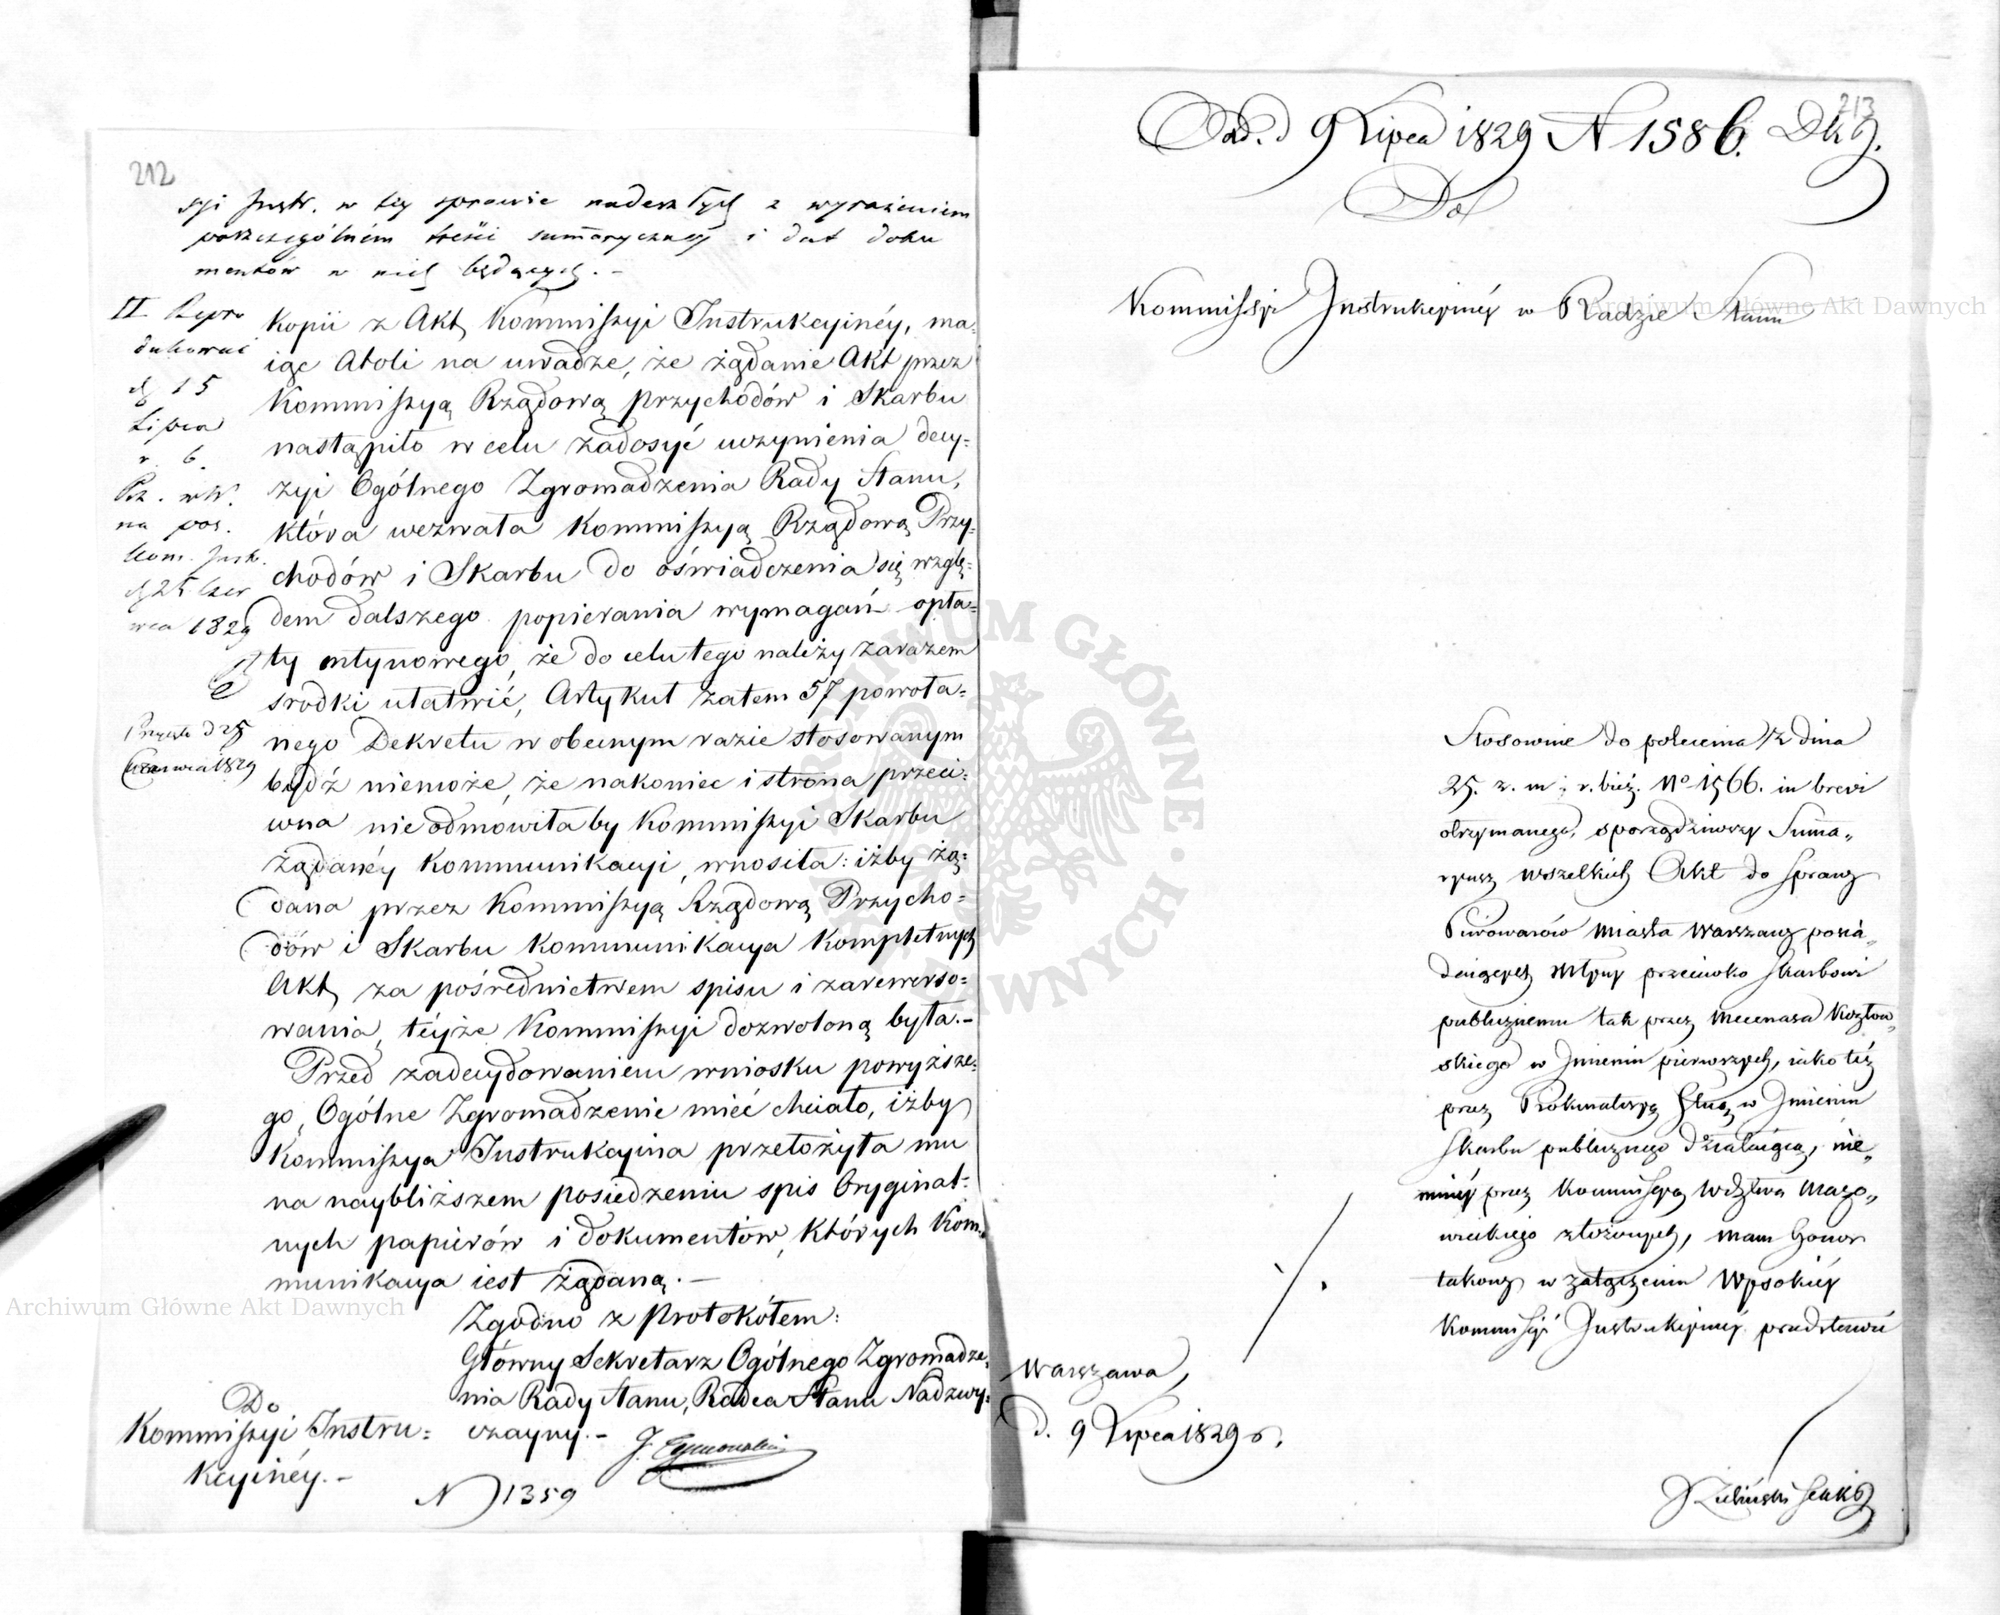 212
syi Instr. w tey sprawie nadeszłych z wyrażeniem
poszczególném treści summaryczney i dat doku
mentów w nich będących. –
II Repro
dukować
d. 15
Lipca
r. b.
na pos.
Kom. Instr.
d 25 Czer
wca 1829
Przyszło d 25
Czerwca 1829
kopii z Akt Kommissyi Instrukcyinéy, ma-
iąc Atoli na uwadze, że żądanie Akt przez
Kommissyą Rządową przychodów i Skarbu
nastąpiło w celu zadosyć uczynienia decy-
zyi Ogólnego Zgromadzenia Rady Stanu,
która wezwała Kommissyą Rządową Przy-
chodów i Skarbu do oświadczenia się wzglę-
dem dalszego popierania wymagań opła-
ty młynowego, że do celu tego należy zarazem
srodki ułatwić, Artykuł zatem 57 powoła-
nego Dekretu w obecnym razie stosowanym
bydź niemoże, że nakoniec i strona przeci-
wna nie odmowiła by Kommissyi Skarbu
żądanéy kommunikacyi, wnosiła: iżby żą-
dana przez Kommissyą Rządową Przycho-
dów i Skarbu kommunikacya kompletnych
Akt za pośrednictwem spisu i zarewerso-
wania, téyże Kommissyi dozwoloną była.–
Przed zadecydowaniem wniosku powyższe-
go, Ogólne Zgromadzenie mieć chciało, iżby
Kommissya Instrukcyina przełożyła mu
na naybliższem posiedzeniu spis Oryginal-
nych papierów i dokumentów, których Kom-
munikacya iest żądaną. –
Zgodno z Protokółem:
Główny Sekretarz Ogólnego Zgromadze-
nia Rady Stanu, Radca Stanu Nadzwy-
czayny. –
Do
Kommissyi Instru-
kcyinéy. –
N 1359
213
Odd. d 9 Lipca 1829 N 1586.
Do
Kommissyi Instrukcyinéy w Radzie Stanu
Stosownie do polecenia z dnia
25. z. m. r. bież. No 1566. in brevi
otrzymanego, sporządziwszy Suma„
ryusz wszelkich Akt do sprawy
Piwowarów Miasta Warszawy posia„
daiących Młyny przeciwko Skarbowi
publicznemu tak przez Mecenasa Kozłow„
skiego w Imieniu pierwszych, iako też
przez Prokuratoryą w Imieniu
Skarbu publicznego działaiącą, nie„
mniéy przez Kommissyą Wdztwa Mazo„
wieckiego złożonych, mam honor
takowy w załączeniu Wysokiéy
Kommissyi Instrukcyinéy przedstawić
Warszawa,
d. 9 Lipca 1829 r.
Archiwum Główne Akt Dawnych
Archiwum Główne Akt Dawnych
ARCHIWUM GŁÓWNE AKT DAWNYCH